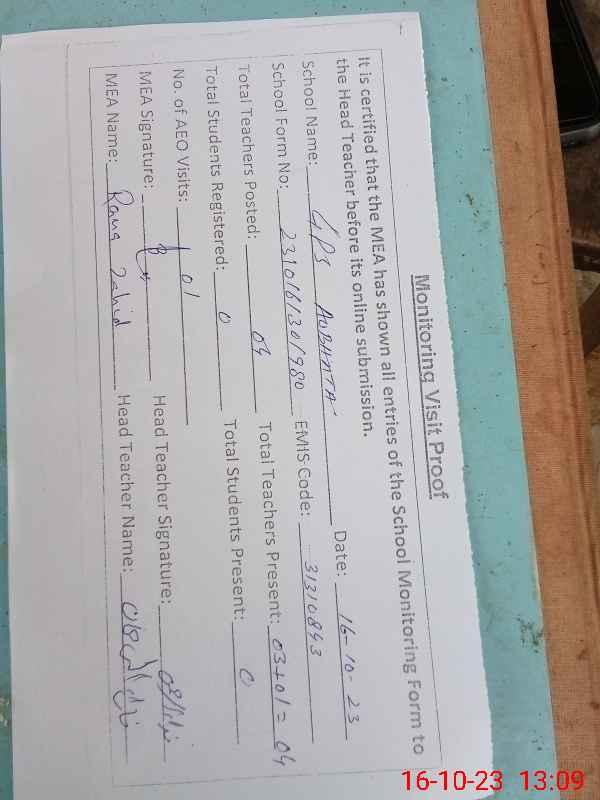 Monitoring Visit Proof
It is certified that the MEA has shown all entries of the School Monitoring Form to
the Head Teacher before its online submission.
School Name: GPS Date: 16-10-23
School Form No: 2310161301980 EMIS Code: 31310843
Total Teachers Posted: 04 Total Teachers Present: 03+01=04
Total Students Registered: 0 Total Students Present: 0
No. of AEO Visits: 01
MEA Signature: Head Teacher Signature:
MEA Name: Rana Zahid Head Teacher Name:
16-10-23 13:09